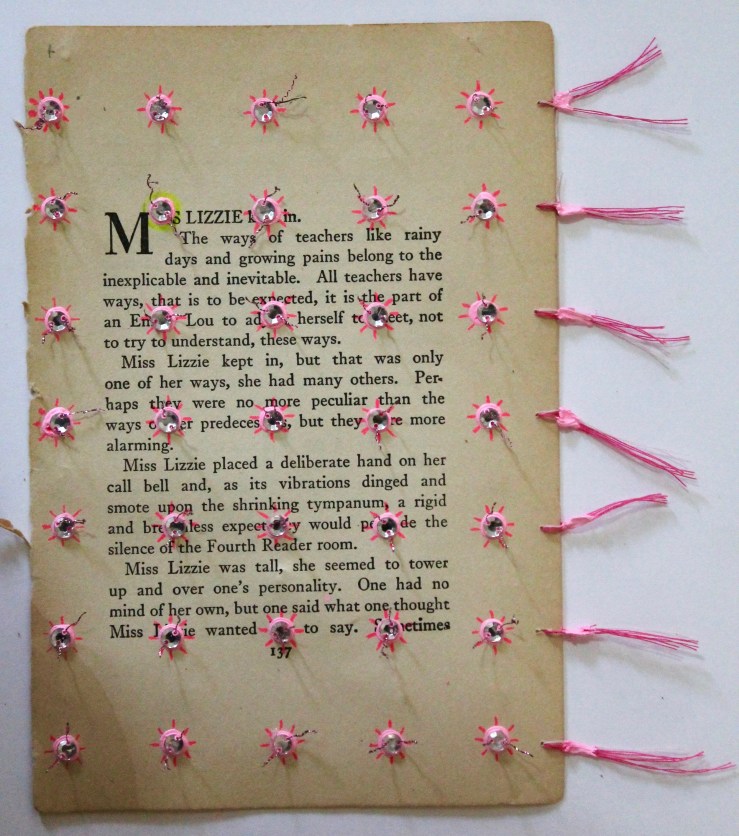 MISS LIZZIE kept in.
The ways of teachers like rainy
days and growing pains belong to the
inexplicable and inevitable. All teachers have
ways, that is to be expected, it is the part of
an Lou to herself to meet, not
to try to understand, these ways.
Miss Lizzie kept in, but that was only
one of her ways, she had many others. Per-
haps they were no more peculiar than the
ways of her predecessors, but they were more
alarming.
Miss Lizzie placed a deliberate hand on her
call bell and, as its vibrations dinged and
smote upon the shrinking tympanum, a rigid
and breathless expectancy would pervade the
silence of the Fourth Reader room.
Miss Lizzie was tall, she seemed to tower
up and over one's personality. One had no
mind of her own, but one said what one thought
Miss Lizzie wanted to say. Sometimes
137